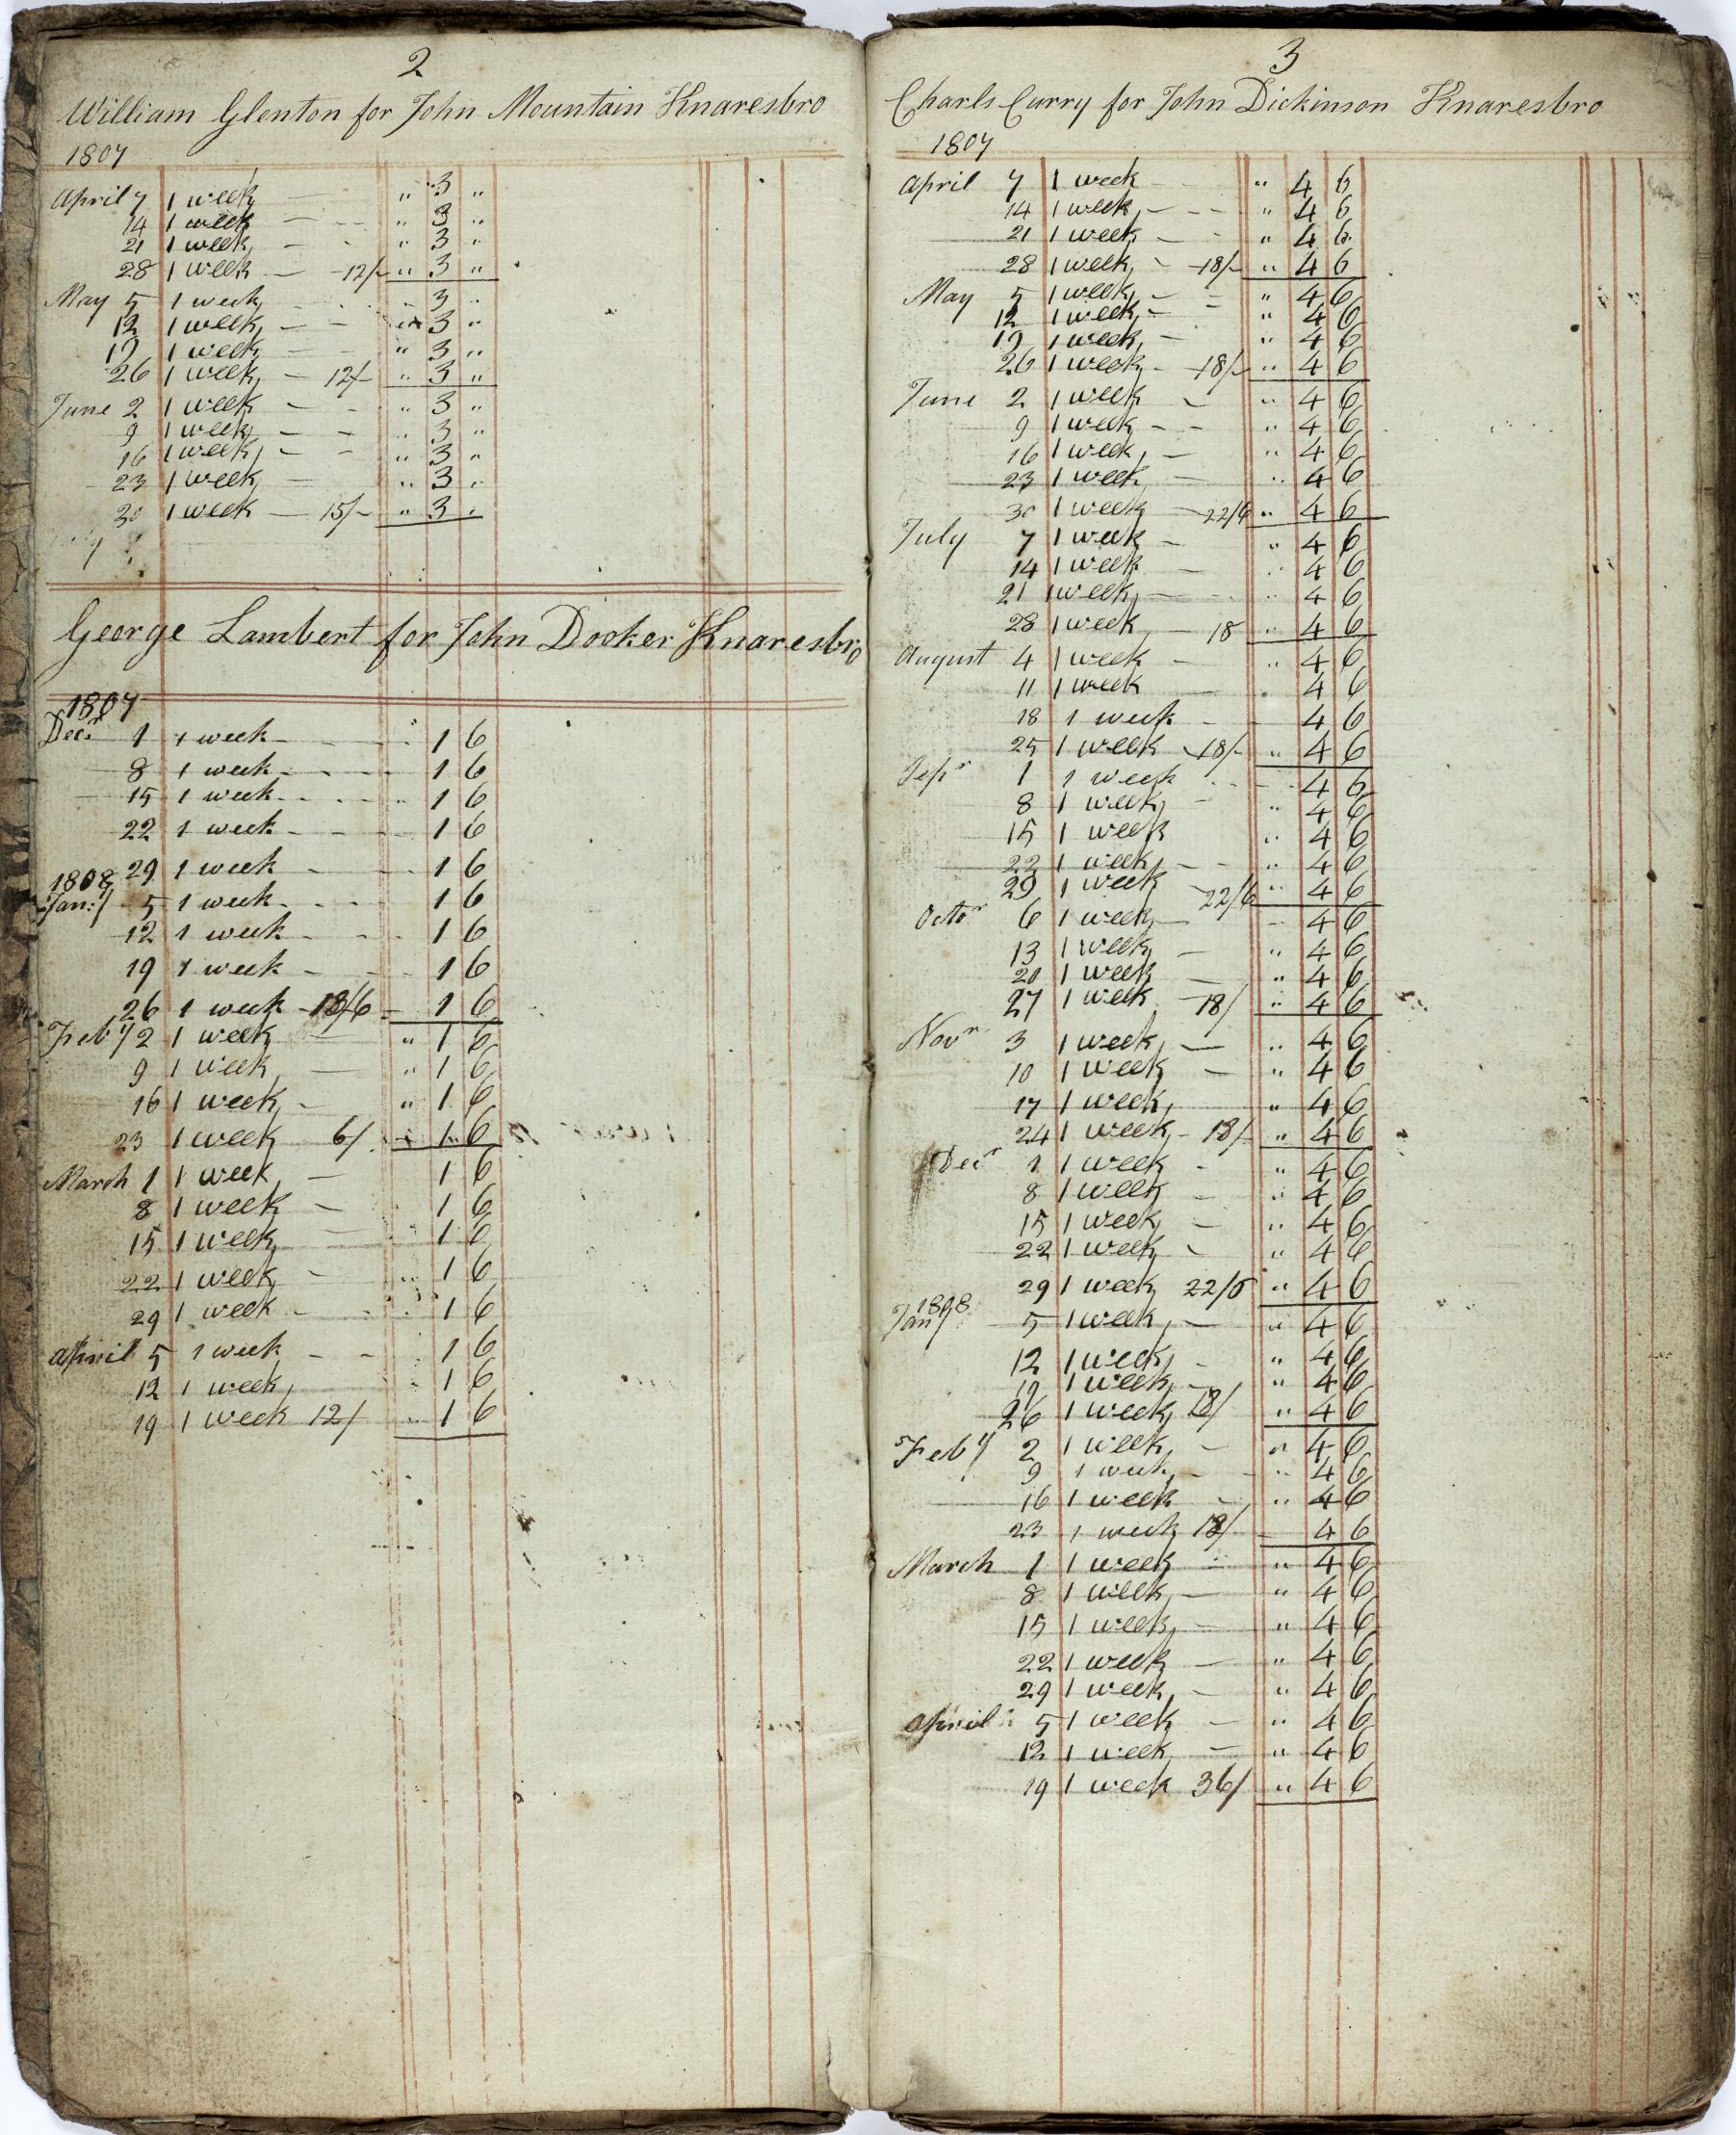 2
William Glenton for John Mountain Knaresbro
1807
April 7 1 week - " 3 "
14 1 week - - " 3 "
21 1 week - - " 3 "
28 1 week - 12/- " 3 "
May 5 1 week - " 3 "
12 1 week - - " 3 "
19 1 week - " 3 "
26 1 week - 12/- " 3 "
June 2 1 week - - " 3 "
9 1 week - - " 3 "
16 1 week - - " 3 "
23 1 week - " 3 "
30 1 week - 15/- " 3 "
George Lambert for John Dooker Knaresbro
1807
Decr 1 1 week - " 1 6
8 1 week - - - 1 6
15 1 week - - - " 1 6
22 1 week - - - 1 6
29 1 week - - 1 6
1808
Jany 5 1 week - - 1 6
12 1 week - - - 1 6
19 1 week - - - 1 6
26 1 week - 13/6 - 1 6
Feby 2 1 week - " 1 6
9 1 week - " 1 6
16 1 week - " 1 6
23 1 week 6/ " 1 6
March 1 1 week - 1 6
8 1 week - 1 6
15 1 week - 1 6
22 1 week - " 1 6
29 1 week - 1 6
April 5 1 week - - 1 6
12 1 week 1 6
19 1 week 12/ " 1 6
3
Charls Curry for John Dickinson Knaresbro
1807
April 7 1 week - " 4 6
14 1 week - - - " 4 6
21 1 week - - " 4 6
28 1 week - 18/- " 4 6
May 5 1 week - - " 4 6
12 1 week - - " 4 6
19 1 week - " 4 6
26 1 week - 18/- " 4 6
June 2 1 week - " 4 6
9 1 week - - " 4 6
16 1 week - " 4 6
23 1 week - " 4 6
30 1 week - 22/6 " 4 6
July 7 1 week - " 4 6
14 1 week - " 4 6
21 1 week - " 4 6
28 1 week - 18 " 4 6
August 4 1 week - " 4 6
11 1 week - 4 6
18 1 week - - 4 6
25 1 week - 18/- " 4 6
Sepr 1 1 week - - 4 6
8 1 week - " 4 6
15 1 week " 4 6
22 1 week - - " 4 6
29 1 week - 22/6 " 4 6
Octor 6 1 week - - 4 6
13 1 week - " 4 6
20 1 week - " 4 6
27 1 week - 18/ " 4 6
Novr 3 1 week - " 4 6
10 1 week - " 4 6
17 1 week " 4 6
24 1 week - 18/- " 4 6
Decr 1 1 week - " 4 6
8 1 week - " 4 6
15 1 week - " 4 6
22 1 week - " 4 6
29 1 week 22/6 " 4 6
1808
Jany 5 1 week - " 4 6
12 1 week - " 4 6
19 1 week - " 4 6
26 1 week 18/ " 4 6
Feby 2 1 week - " 4 6
9 1 week - - " 4 6
16 1 week - " 4 6
23 1 week 18/ - 4 6
March 1 1 week - " 4 6
8 1 week - " 4 6
15 1 week - " 4 6
22 1 week - " 4 6
29 1 week - " 4 6
April 5 1 week - " 4 6
12 1 week - " 4 6
19 1 week 36/ " 4 6